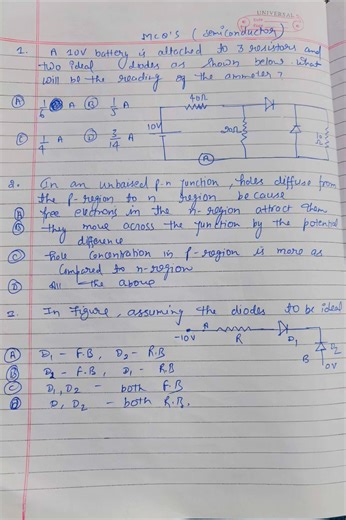 UNIVERSAL
MCQ'S (Semiconductor)
1. A 10V battery is attached to 3 resistors and
two ideal diodes as shown below. What
will be the reading of the ammeter?
(A) 1/6 A (B) 1/5 A
(C) 1/4 A (D) 3/14 A
40Ω
10V
20Ω
A
2. In an unbaised p-n junction, holes diffuse from
the p-region to n region because
(A) free electrons in the n-region attract them
(B) they move across the junction by the potential
difference
(C) hole concentration in p-region is more as
Compared to n-region
(D) All the above
3. In Figure, assuming the diodes to be ideal
-10V A R D1
D2
B 0V
(A) D1 - F.B, D2 - R.B
(B) D2 - F.B, D1 - R.B
(C) D1, D2 - both F.B
(D) D, D2 - both R.B.